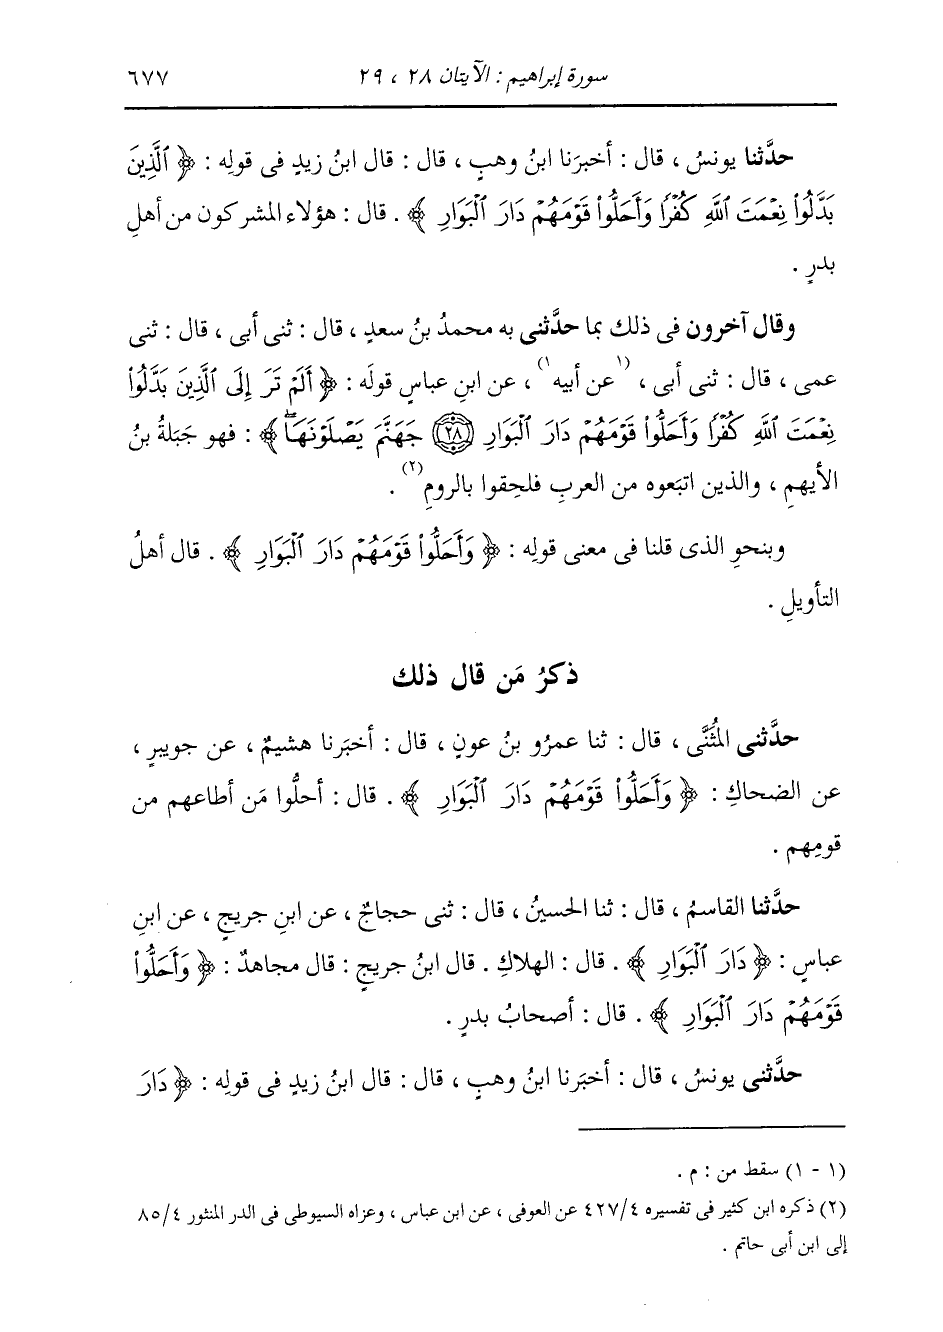 سورة إبراهيم : الآيتان ٢٨ ، ٢٩ ٦٧٧
حدَّثنا يونسُ ، قال : أخبرَنا ابنُ وهبٍ ، قال : قال ابنُ زيدٍ فى قولِه : ﴿ ٱلَّذِينَ
بَدَّلُوا۟ نِعْمَتَ ٱللَّهِ كُفْرًا وَأَحَلُّوا۟ قَوْمَهُمْ دَارَ ٱلْبَوَارِ ﴾ . قال : هؤلاء المشركون من أهلِ
بدرٍ .
وقال آخرون فى ذلك بما حدَّثنى به محمدُ بنُ سعدٍ ، قال : ثنى أبى ، قال : ثنى
عمى ، قال : ثنى أبى ، (١عن أبيه١) ، عن ابنِ عباسٍ قولَه : ﴿ أَلَمْ تَرَ إِلَى ٱلَّذِينَ بَدَّلُوا۟
نِعْمَتَ ٱللَّهِ كُفْرًا وَأَحَلُّوا۟ قَوْمَهُمْ دَارَ ٱلْبَوَارِ (٢٨) جَهَنَّمَ يَصْلَوْنَهَا ۖ ﴾ : فهو جَبَلةُ بنُ
الأيهمِ ، والذين اتبَعوه من العربِ فلحِقوا بالرومِ(٢) .
وبنحوِ الذى قلنا فى معنى قولِه : ﴿ وَأَحَلُّوا۟ قَوْمَهُمْ دَارَ ٱلْبَوَارِ ﴾ . قال أهلُ
التأويلِ .
ذكرُ مَن قال ذلك
حدَّثنى المُثَنَّى ، قال : ثنا عمرُو بنُ عونٍ ، قال : أخبَرنا هشيمٌ ، عن جويبرٍ ،
عن الضحاكِ : ﴿ وَأَحَلُّوا۟ قَوْمَهُمْ دَارَ ٱلْبَوَارِ ﴾ . قال : أحلُّوا مَن أطاعهم من
قومِهم .
حدَّثنا القاسمُ ، قال : ثنا الحسينُ ، قال : ثنى حجاجٌ ، عن ابنِ جريجٍ ، عن ابنِ
عباسٍ : ﴿ دَارَ ٱلْبَوَارِ ﴾ . قال : الهلاكِ . قال ابنُ جريجٍ : قال مجاهدٌ : ﴿ وَأَحَلُّوا۟
قَوْمَهُمْ دَارَ ٱلْبَوَارِ ﴾ . قال : أصحابُ بدرٍ .
حدَّثنى يونسُ ، قال : أخبَرنا ابنُ وهبٍ ، قال : قال ابنُ زيدٍ فى قولِه : ﴿ دَارَ
(١ - ١) سقط من : م .
(٢) ذكره ابن كثير فى تفسيره ٤٢٧/٤ عن العوفى ، عن ابن عباس ، وعزاه السيوطى فى الدر المنثور ٨٥/٤
إلى ابن أبى حاتم .